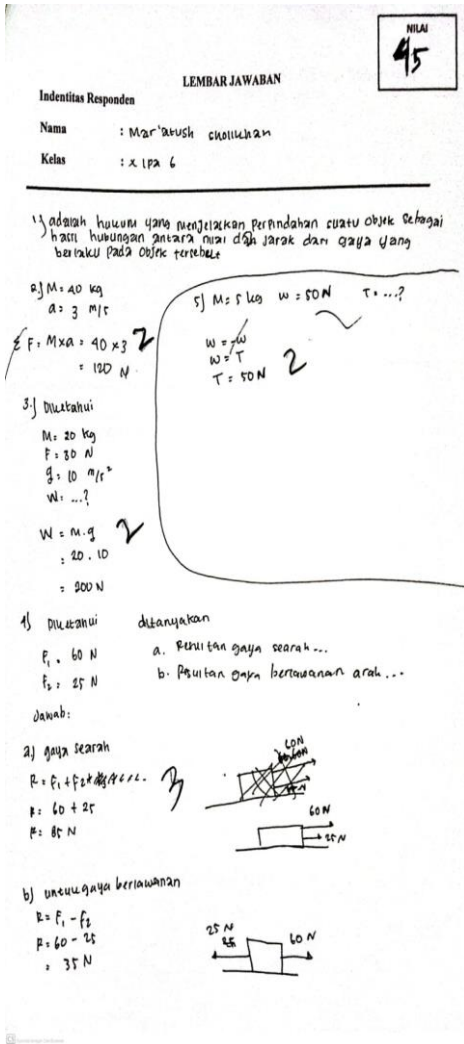 NILAI
45
LEMBAR JAWABAN
Indentitas Responden
Nama : Mar'atush sholikhah
Kelas : x IPA 6
1.) adalah hukum yang menjelaskan perpindahan suatu objek sebagai
hasil hubungan antara nilai dan jarak dari gaya yang
berlaku pada objek tersebut
2.) M = 40 kg
a = 3 m/s
ΣF = M x a = 40 x 3 2
= 120 N
3.) Diketahui
M = 20 kg
F = 30 N
g = 10 m/s²
W = ...?
W = m.g 2
= 20 . 10
= 200 N
5.) M = 5 kg w = 50 N T = ...?
w = -w
w = T
T = 50 N 2
4.) Diketahui ditanyakan
F₁ = 60 N a. Resultan gaya searah...
F₂ = 25 N b. Resultan gaya berlawanan arah...
Jawab:
a.) gaya searah
R = F₁ + F₂ + 3
R = 60 + 25
R = 85 N
60 N
25 N
b.) untuk gaya berlawanan
R = F₁ - F₂
R = 60 - 25
= 35 N
25 N
60 N